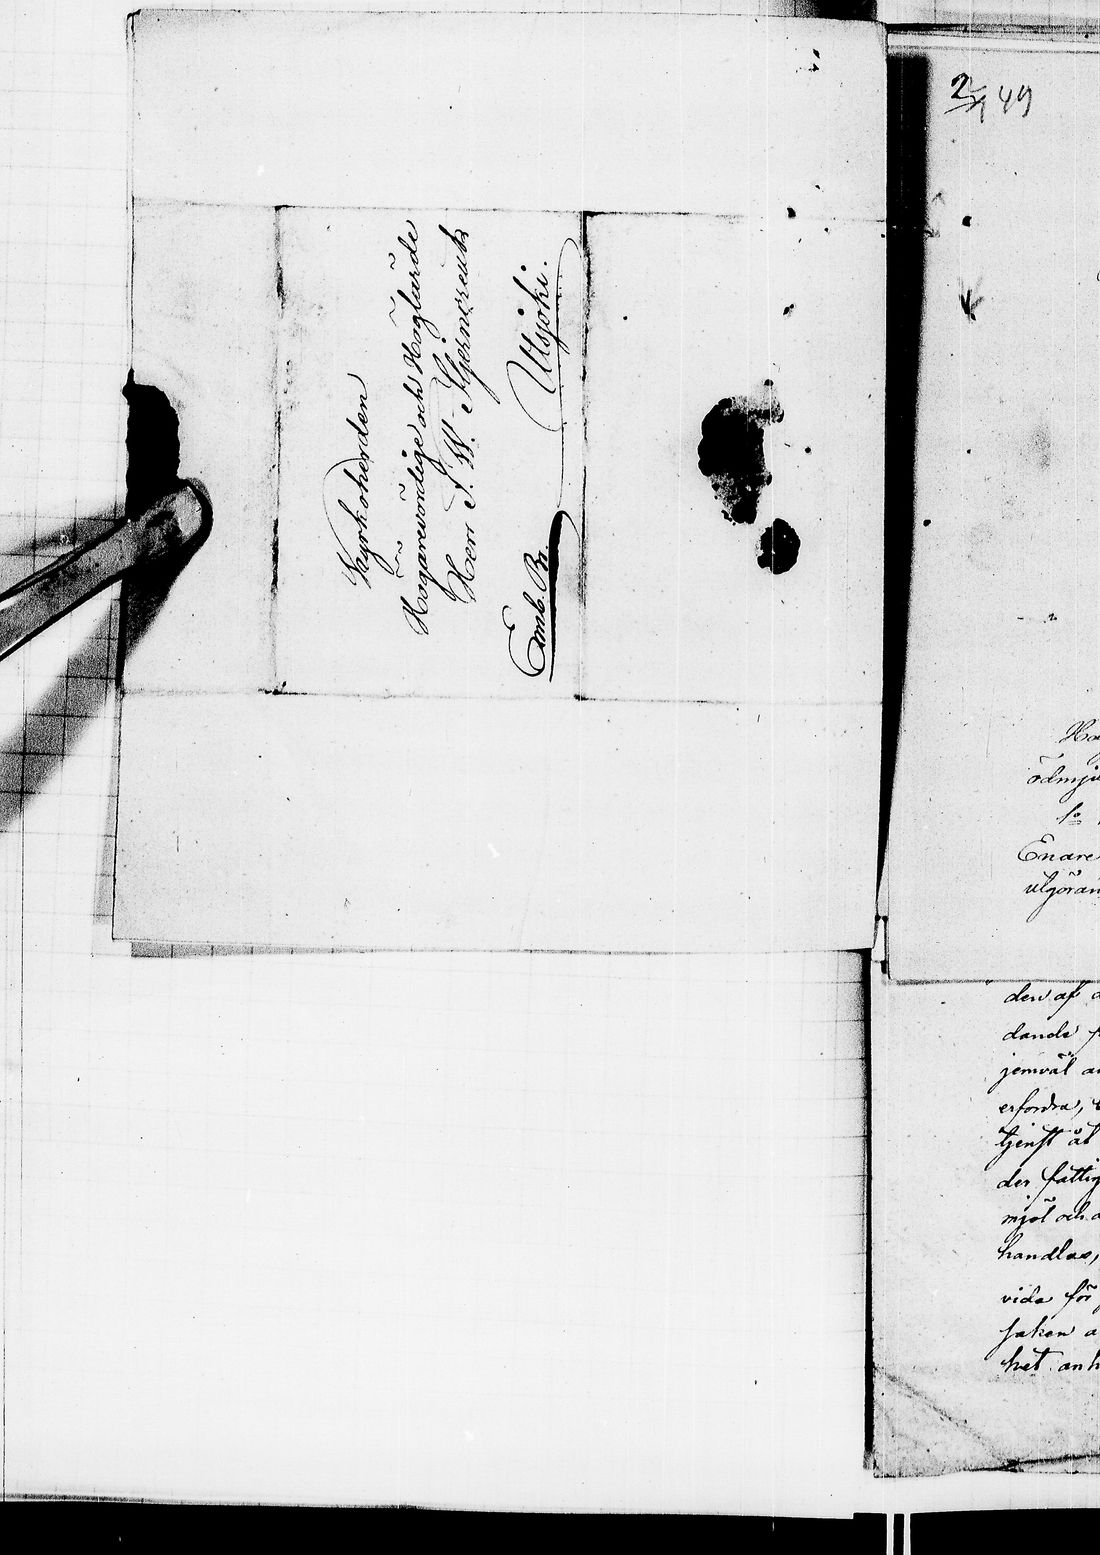 Kyrkoherden
Högarevördige och Höglärde
Herr S. W. Hjerneculs
Emb. Br. Utsjoki.
2/1 49
ödmju
1o
Enare
utgöran
den af
dande f
jemväl an
erfordra,
tjenst åt
der fattig
mjöl och
handlas,
vida för
saken a
het anh